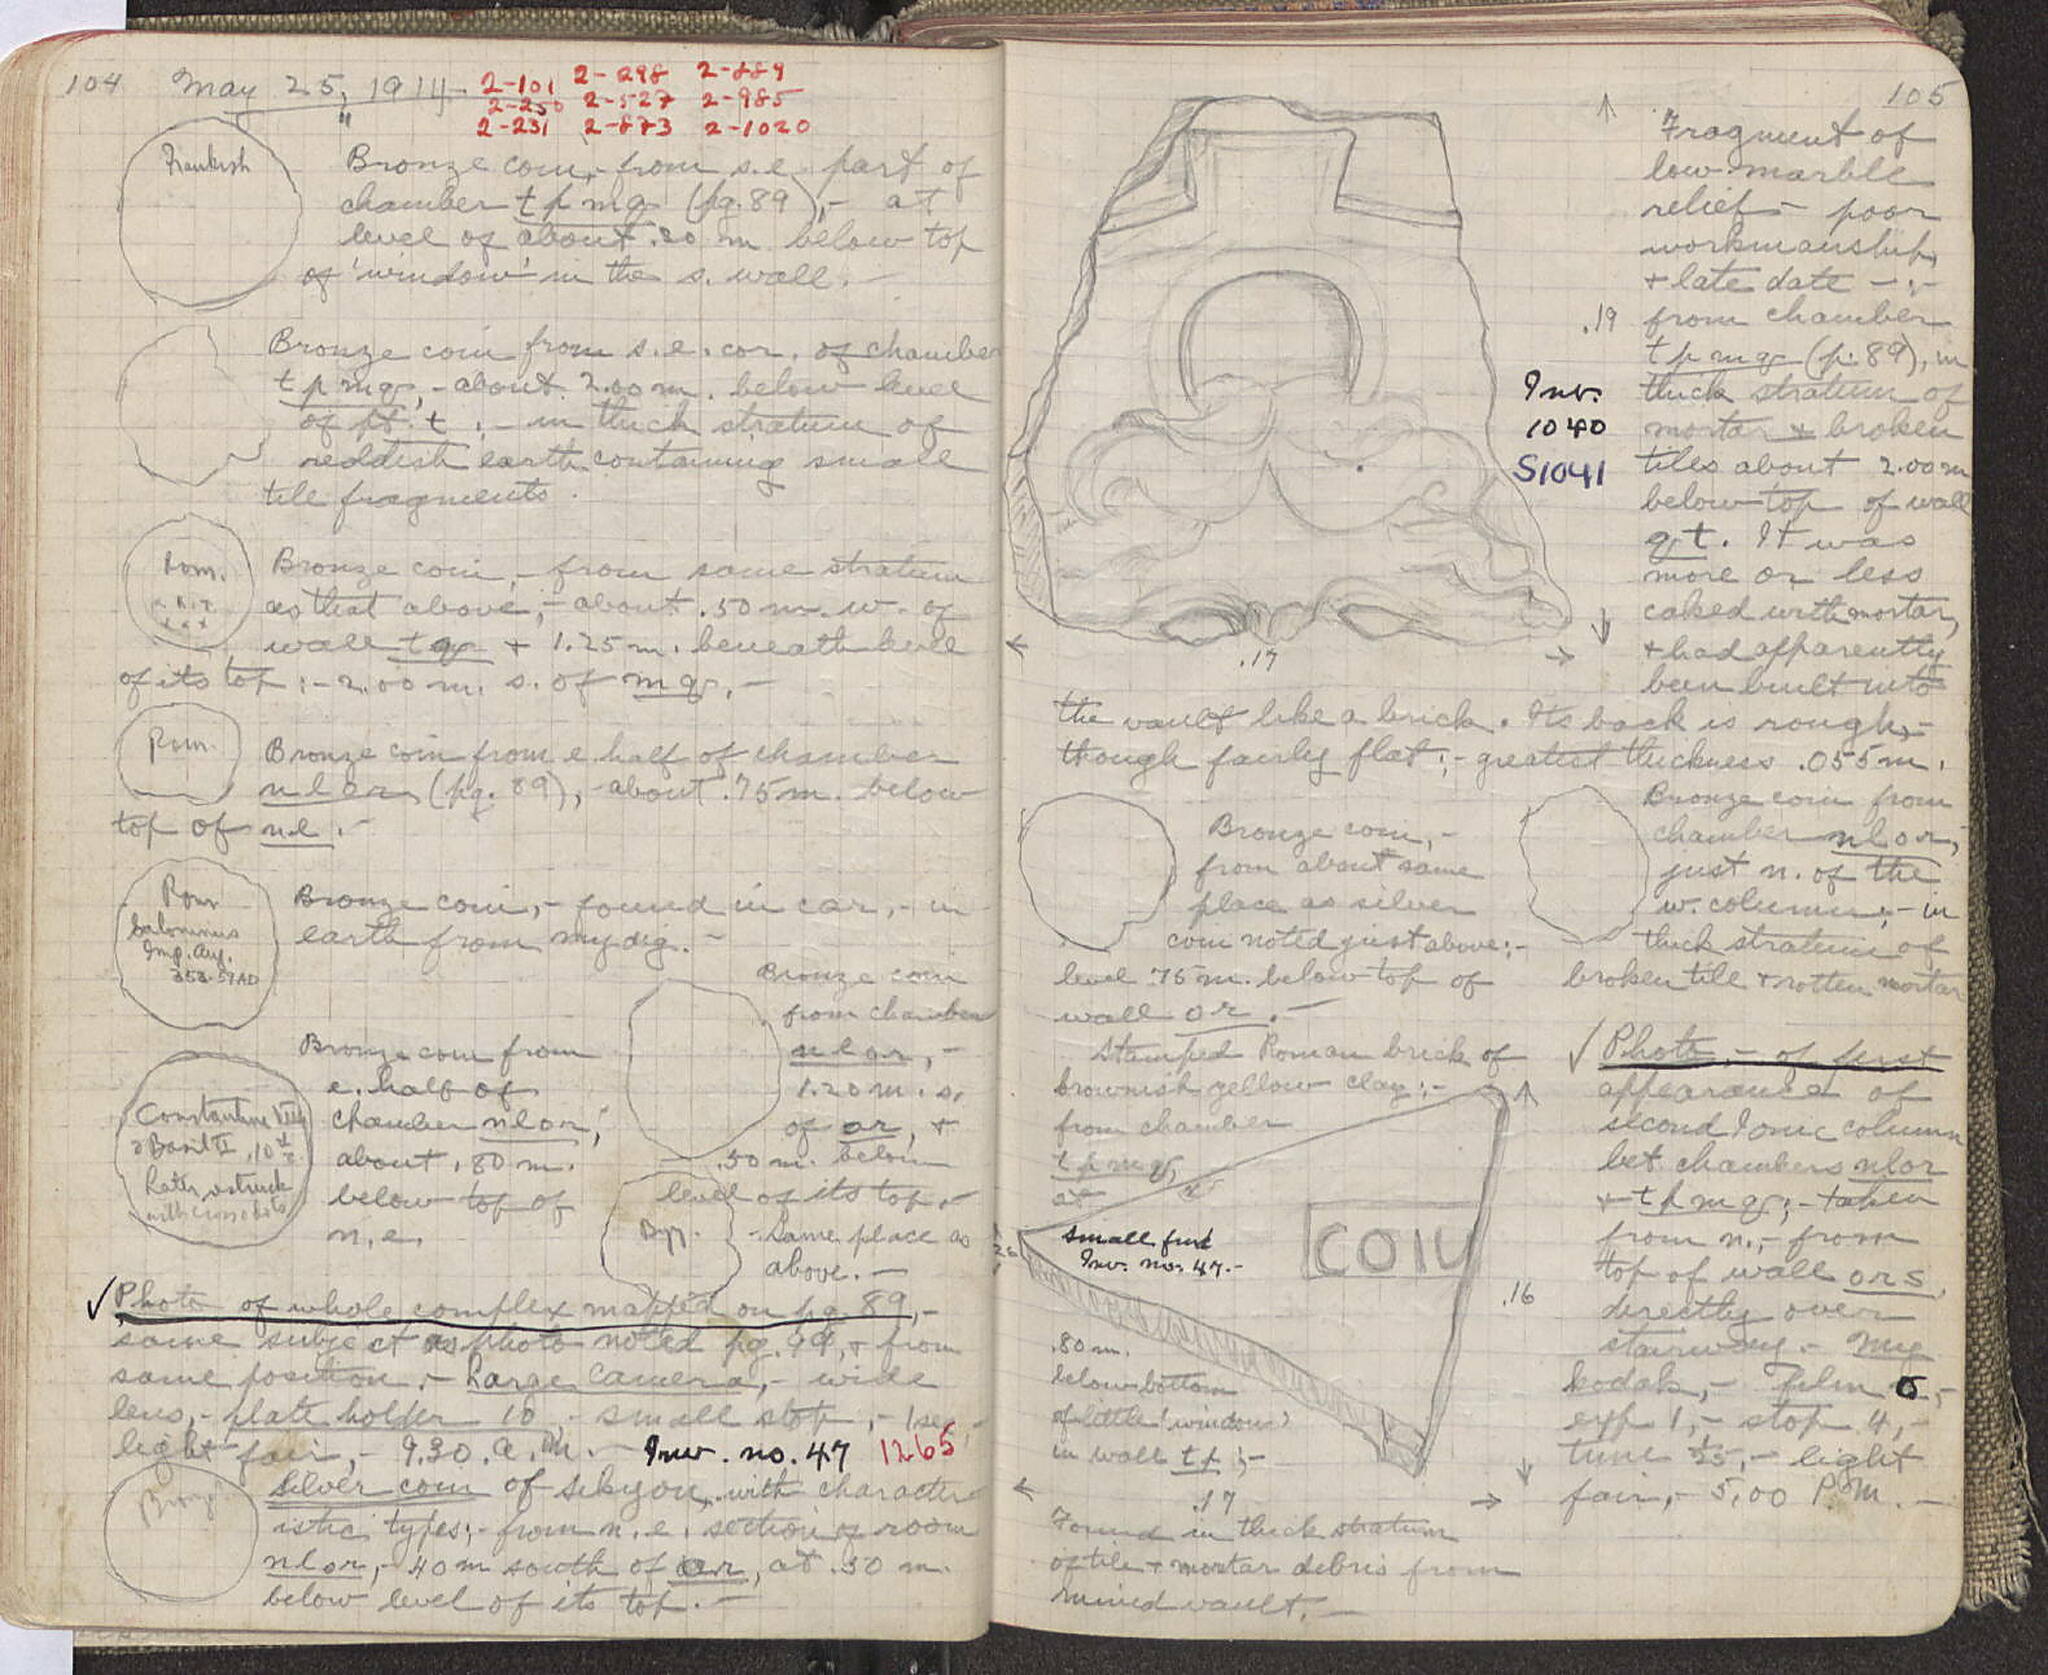 104 May 25, 1914.
2-101 2-298 2-889
2-250 2-527 2-985
2-231 2-873 2-1020
"
Frankish
Bronze coin,- from s.e. part of
chamber t p m q (pg. 89),- at
level of about .20 m below top
of 'window' in the s. wall. -
Bronze coin from s.e. cor. of chamber
t p m q,- about 2.00 m. below level
of pt. t ;- in thick stratum of
reddish earth containing small
tile fragments.
Rom.
Bronze coin,- from same stratum
as that above,- about .50 m. w. of
wall t q + 1.25 m. beneath level
of its top :- 2.00 m. s. of m q. -
Rom.
Bronze coin from e half of chamber
n l o r (pg. 89),- about .75 m. below
top of n l. -
Rom
Saloninus
Imp. Aug.
253-59 AD
Bronze coin,- found in car,- in
earth from my dig. -
Bronze coin
from chamber
n l o r,-
1.20 m. s.
of o r, +
.50 m. below
level of its top. -
Constantine VII
& Basil II, 10th c.
Later, struck
with cross
Bronze coin from
e. half of
chamber n l o r,
about .80 m.
below top of
n. e.
Byz.
- Same place as
above. -
✓ Photo of whole complex mapped on pg. 89,-
same subject as photo noted pg. 99, + from
same position :- Large Camera,- wide
lens,- plate holder 10,- small stop,- 1 sec,-
light fair,- 9.30. a.m. - Inv. no. 47 1265
Bronze
Silver coin of Sikyon, with character-
istic types;- from n. e. section of room
n l o r,- .40 m south of o r, at .50 m.
below level of its top. -
105
Fragment of
low marble
relief - poor
workmanship,
+ late date -;-
.19 from chamber
t p m q (p. 89), in
Inv. thick stratum of
1040 mortar + broken
S1041 tiles about 2.00 m
below top of wall
q t. It was
more or less
caked with mortar,
+ had apparently
been built into
.17
the vault like a brick. Its back is rough,-
though fairly flat;- greatest thickness .055 m.
Bronze coin,-
from about same
place as silver
coin noted just above;-
level .75 m. below top of
wall o r. -
Bronze coin from
chamber n l o r,
just n. of the
w. column,- in
thick stratum of
broken tile + rotten mortar
Stamped Roman brick of
brownish yellow clay;-
from chamber
t p m q,
at
small find
Inv. no. 47. -
COIU
.16
.80 m.
below bottom
of little 'window'
in wall t p ;-
.17
Found in thick stratum
of tile + mortar debris from
ruined vault. -
✓ Photo,- of first
appearance of
second Ionic column
bet. chambers n l o r
+ t p m q ;- taken
from n.,- from
top of wall o r s,
directly over
stairway. - My
kodak,- Film 6,-
exp 1,- stop 4,-
time 1/25,- light
fair,- 5.00 P.M. -